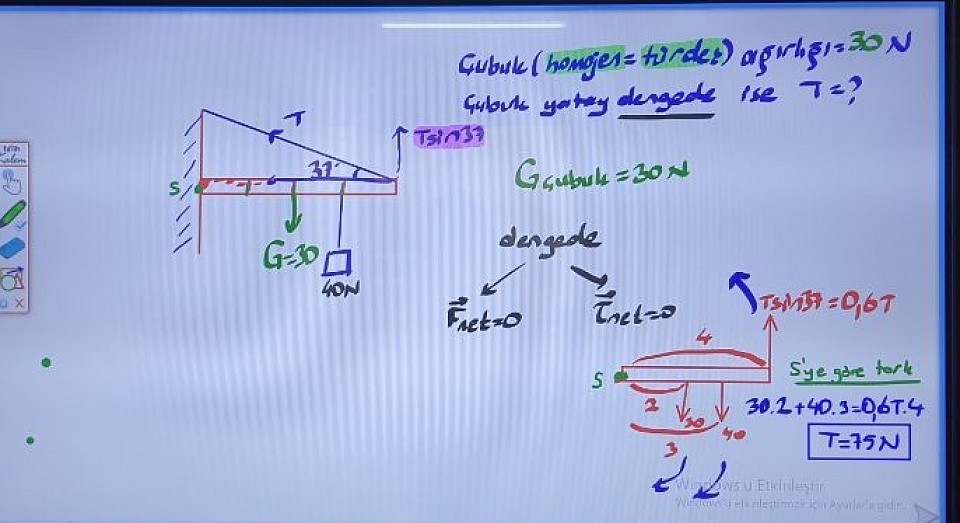 Çubuk (homojen = türdeş) ağırlığı = 30 N
Çubuk yatay dengede ise T = ?
T
Tsin37
37°
S
G=30
40N
Gçubuk = 30 N
dengede
F⃗net=0
τ⃗net=0
Tsin37=0,6T
4
S
S'ye göre tork
2
30
40
3
30.2+40.3=0,6T.4
T=75N
Windows'u Etkinleştir
Windows'u etkinleştirmek için Ayarlar'a gidin.